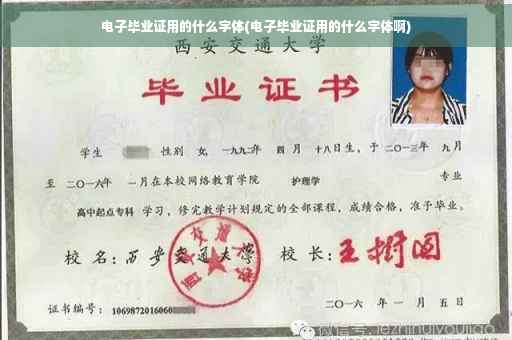 电子毕业证用的什么字体(电子毕业证用的什么字体啊)
西安交通大学
毕业证书
学生 性别 女, 一九九二年 四 月 十八日生, 于 二〇一三年 九月
至 二〇一六年 一月在本校网络教育学院 护理学 专业
高中起点专科 学习, 修完教学计划规定的全部课程, 成绩合格, 准予毕业。
校 名: 西安交通大学 校 长: 王树国
西安交通大学
证书编号: 1069872016060
二〇一六 年 一 月 五 日
微信号: jezhinuiyoujiao